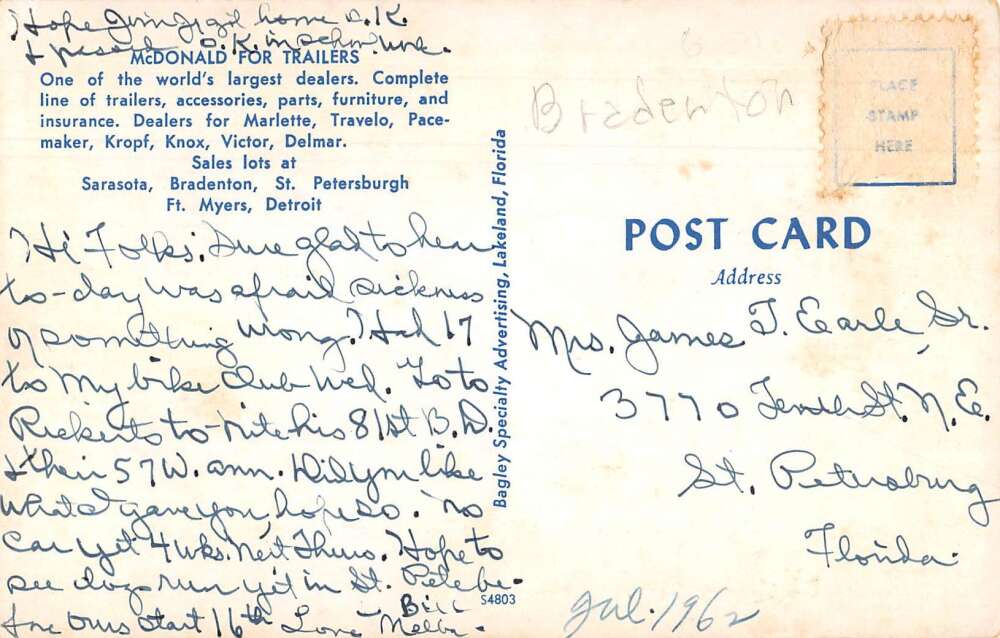 Hope Jim Jr got home O.K.
& passed O.K. in school work.
McDONALD FOR TRAILERS
One of the world's largest dealers. Complete
line of trailers, accessories, parts, furniture, and
insurance. Dealers for Marlette, Travelo, Pace-
maker, Kropf, Knox, Victor, Delmar.
Sales lots at
Sarasota, Bradenton, St. Petersburgh
Ft. Myers, Detroit
Hi Folks. Sure glad to hear
to-day was afraid sickness
or something wrong. Had 17
to my bike club Wed. Go to
Rickerts to-nite his 81st B.D.
& their 57 W. ann. Did you like
what I gave you, hope so. no
car yet 4 wks. next Thurs. Hope to
see dogs run yet in St. Pete be-
fore ours start 16th Love Bill
Melba.
Bagley Specialty Advertising, Lakeland, Florida
S4803
Bradenton
PLACE
STAMP
HERE
POST CARD
Address
Mrs. James T. Earle, Sr.
3770 Tenth St. N.E.
St. Petersburg
Florida.
Jul. 1962